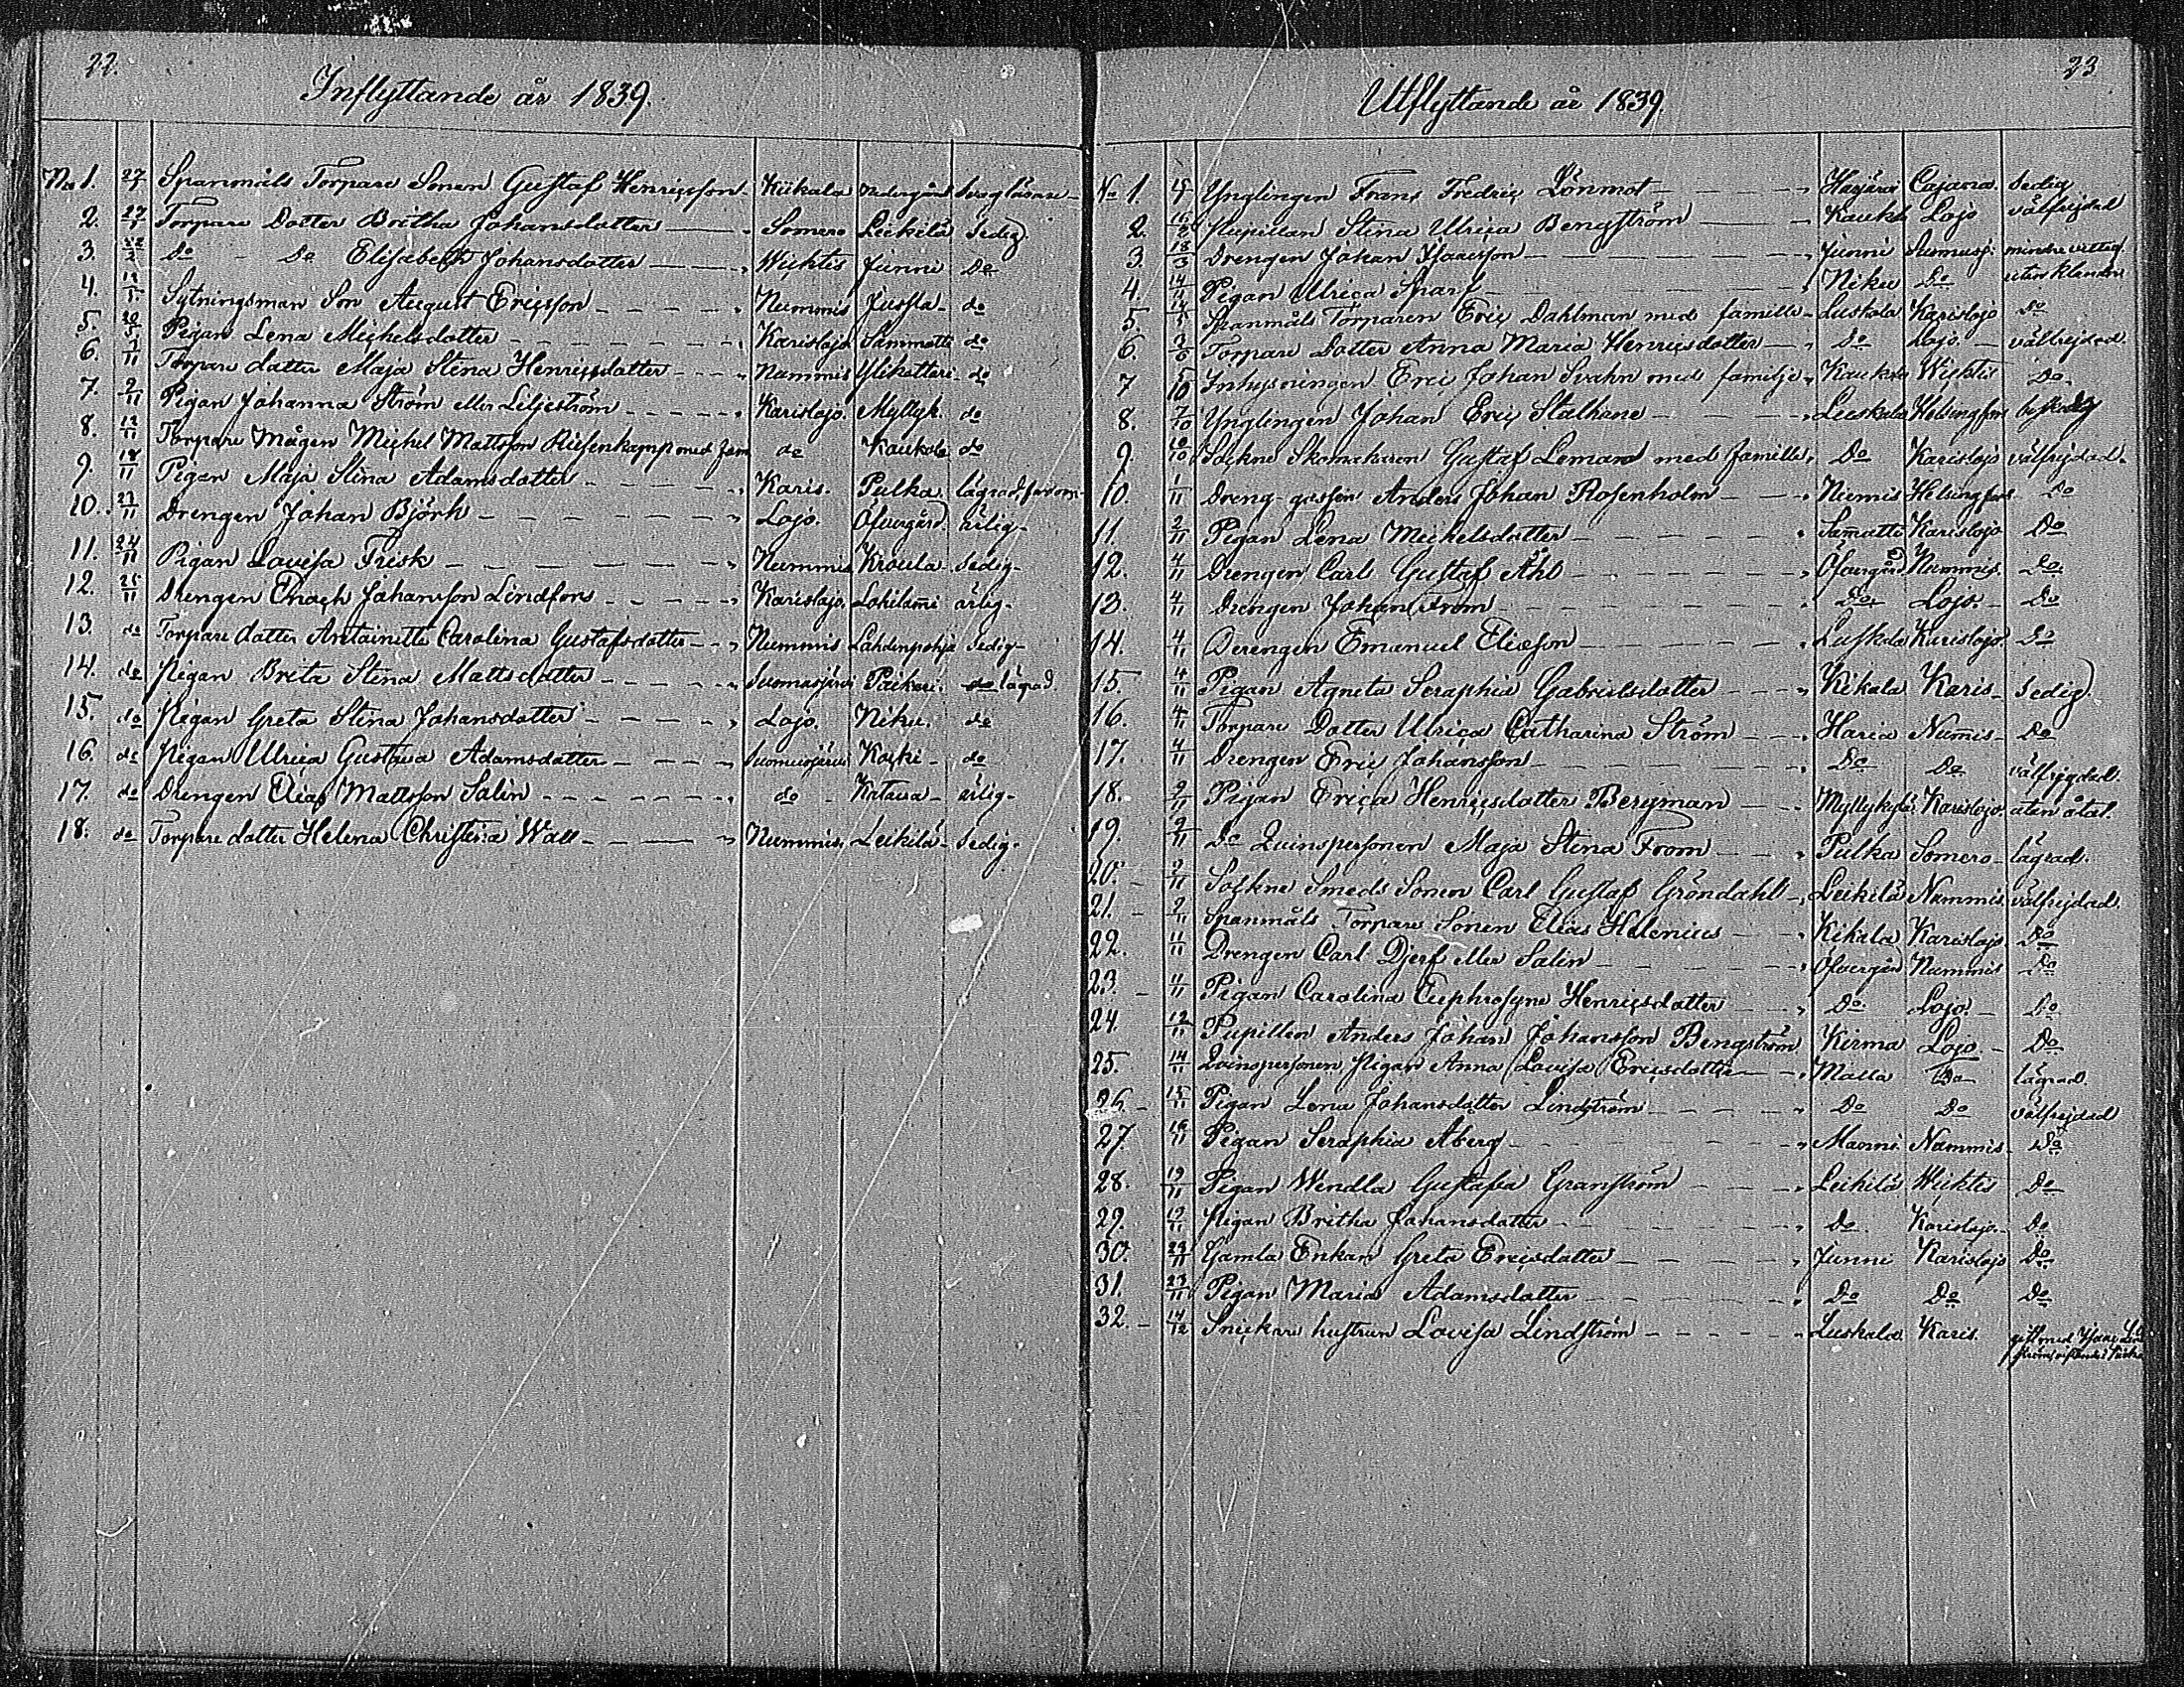 22.
Inflyttande år 1839.
No 1. 27/1 Spanmåls Torpare Sonen Gustaf Henricsson Kiikala Nedergård svag läsare
2. 27/1 Torpare Dotter Britha Johansdotter Somero Leikilä Sedig
3. Do Do Elisabeth Johansdotter Wichtis Junni Do
4. Sytningsman Son August Ericsson Nummis Jussla do
5. 20/5 Pigan Lena Michelsdotter Karislojo Sammatti do
6. Torpare dotter Maja Stina Henricsdotter Nummis Yliketturi do
7. 9/11 Pigan Johanna Ström eller Liljeström Karislojo. Myllyk. do
8. 12/11 Torpare Mågen Michel Mattsson Riesenkampf med fam do Kaukola do
9. 18/11 Pigan Maja Stina Adamsdotter Karis. Pulka lägrad,
10. 23/11 Drengen Johan Björk Lojo. Öfvergård ärlig
11. 24/11 Pigan Lovisa Frisk Nummis Kroula sedig
12. 25/11 Drengen Enoch Johansson Lindfors Karislojo. Lohilami ärlig
13. do Torpare dotter Antoinette Carolina Gustafsdotter Nummis Lähdenpohja sedig
14. do Pigan Brita Stina Mattsdotter Suomusjärvi Paikari do lägrad.
15. do Pigan Greta Stina Johansdotter Lojo. Niku. do
16. do Pigan Ulrica Gustava Adamsdotter Suomusjärvi Koski do
17. do Drengen Elias Mattsson Salin do Katava ärlig
18. do Torpare dotter Helena Christina Wall Nummis. Leikilä sedig.
23
Utflyttande år 1839.
No 1. Ynglingen Frans Fredric Lönmot Harjärvi Cajana. sedig
2. 16/2 Pupillan Stina Ulrica Bengström Kaukola Lojo välfrejdad
3. 18/3 Drengen Johan Isacsson Junni Suomusj. mindre vettig
4. Pigan Ulrica Sparf Niku Do utan klander
5. Spanmåls Torparen Eric Dahlman med famille Luskala Karislojo Do
6. Torpare Dotter Anna Maria Henricsdotter Do Lojo. välfrejdad.
7 5/10 Inhysningen Eric Johan Svahn med familje Kaukola Wichtis Do.
8. 7/10 Ynglingen Johan Eric Stalhane Luskala Helsingfors beskedlig
9 10/10 Sockne Skomakaren Gustaf Leman med famille Do Karislojo välfrejdad.
10. 1/11 Dreng-gossen Anders Johan Rosenholm Niemis Helsingfors Do
11. 2/11 Pigan Lena Michelsdotter Samatti Karislojo Do
12. 4/11 Drengen Carl Gustaf Åhl Öfvergård Nummis. Do
13. 4/11 Drengen Johan From Do Lojo. Do
14. 4/11 Drengen Emanuel Eliasson Luskala Karislojo Do
15. 4/11 Pigan Agneta Seraphia Gabrielsdotter Kikala Karis sedig
16. 4/11 Torpare Dotter Ulrica Catharina Ström Haria Numis Do
17. 4/11 Drengen Eric Johansson Do Do välfrejdad.
18. 9/11 Pigan Erica Henricsdotter Bergman Myllykylä Karislojo. utan åtal.
19. 9/11 Do Quinspersonen Maja Stina From Pulka Somero lägrad.
20. 9/11 Sockne Smeds Sonen Carl Gustaf Gröndahl Leikilä Nummis. välfrejdad.
21. 9/11 Spanmåls Torpare Sonen Elias Helenius Kikala Karislojo Do
22. 11/11 Drengen Carl Djerf eller Salin Öfvergård Nummis Do
23. 11/11 Pigan Carolina Euphrosyne Henricsdotter Do Lojo. Do
24. 12/11 Pupillen Anders Johan Johansson Bengström Kirma Lojo Do
25. 14/11 Quinspersonen Pigan Anna Lovisa Ericsdotter Malla Do lägrad.
26. 15/11 Pigan Lena Johansdotter Lindström Do Do välfrejdad
27. 16/11 Pigan Seraphia Aberg Maoni Nummis Do
28. 19/11 Pigan Wendla Gustafva Granström Leikilä Wichtis Do
29. 19/11 Pigan Britha Johansdotter do Karislojo. Do
30. 23/11 Gamla Enkan Greta Ericsdotter Junni Karislojo Do
31. 23/11 Pigan Maria Adamsdotter Do Do Do
32. 14/12 Snickare hustrun Lovisa Lindström Luskala Karis. gift med Isaac Lind